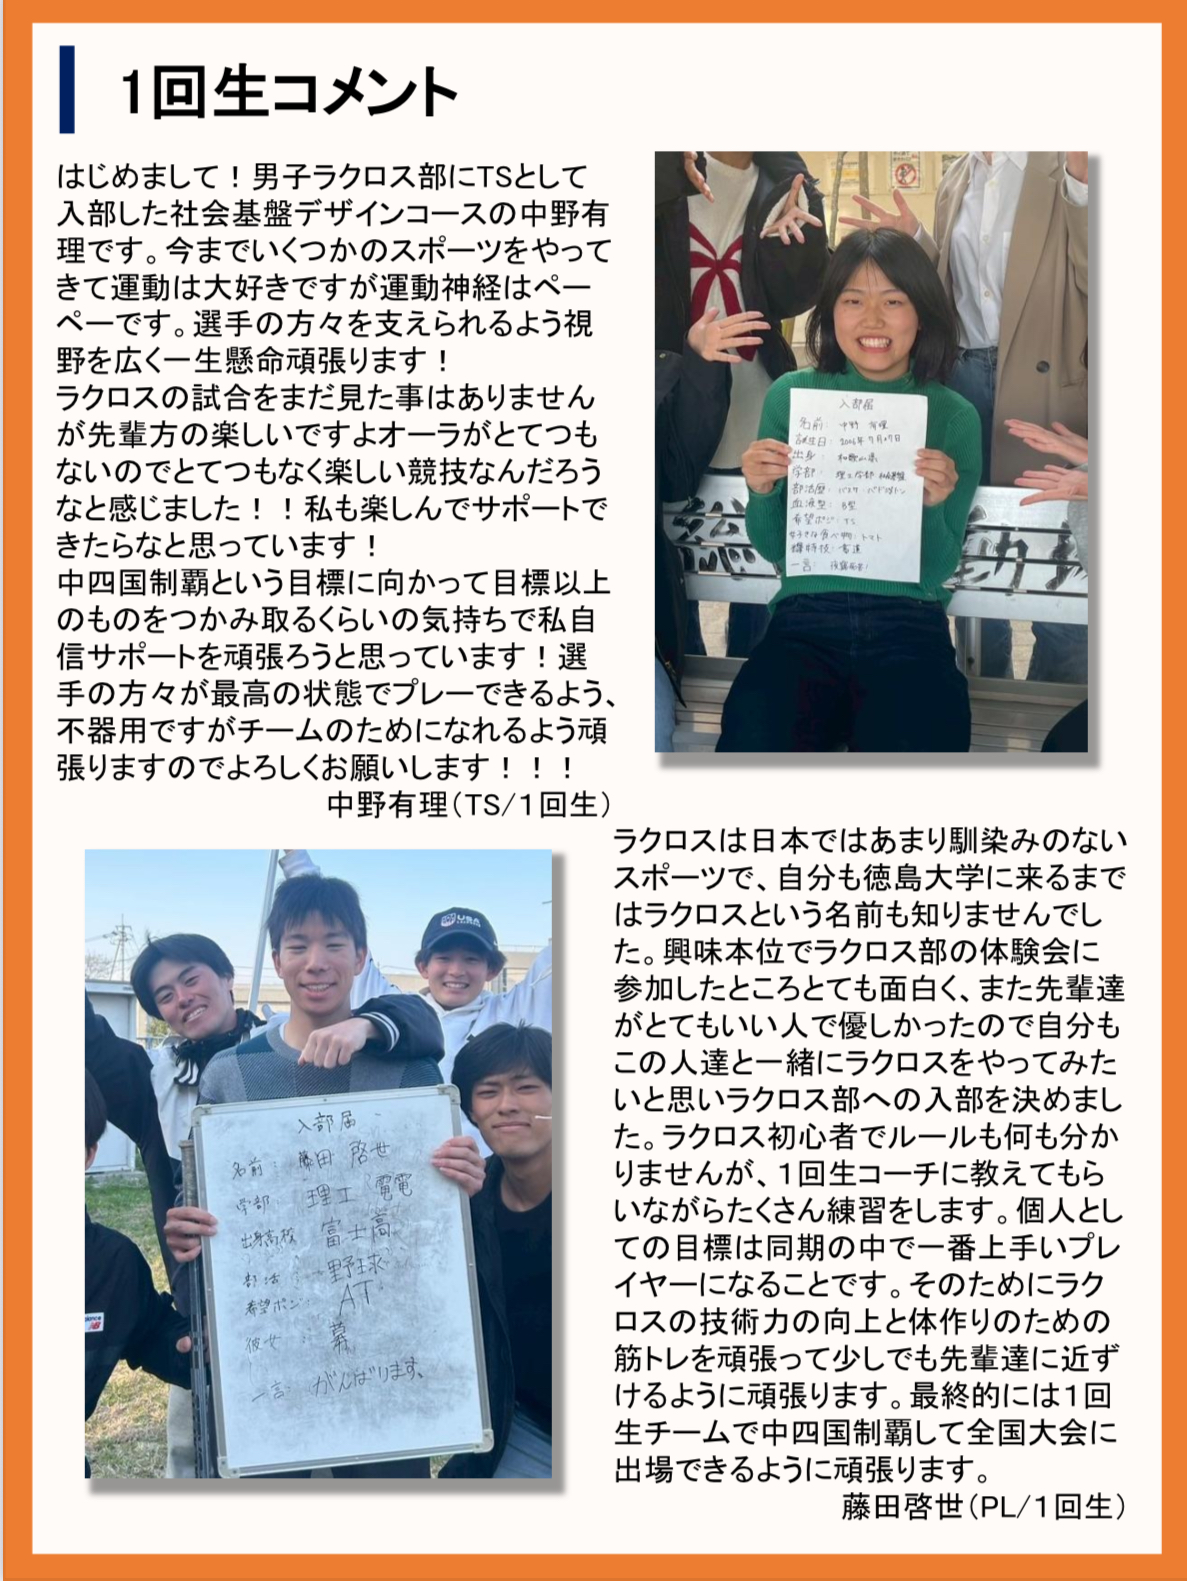 1回生コメント
はじめまして！男子ラクロス部にTSとして
入部した社会基盤デザインコースの中野有
理です。今までいくつかのスポーツをやって
きて運動は大好きですが運動神経はペー
ペーです。選手の方々を支えられるよう視
野を広く一生懸命頑張ります！
ラクロスの試合をまだ見た事はありません
が先輩方の楽しいですよオーラがとてつも
ないのでとてつもなく楽しい競技なんだろう
なと感じました！！私も楽しんでサポートで
きたらなと思っています！
中四国制覇という目標に向かって目標以上
のものをつかみ取るくらいの気持ちで私自
信サポートを頑張ろうと思っています！選
手の方々が最高の状態でプレーできるよう、
不器用ですがチームのためになれるよう頑
張りますのでよろしくお願いします！！！
中野有理（TS/１回生）
入部届
名前： 中野 有理
誕生日：
出身： 和歌山県
学部： 理工学部
部活歴： バスケ・バドミントン
血液型： B型
希望ポジ：TS
好きな食べ物：トマト
特技：書道
一言：
ラクロスは日本ではあまり馴染みのない
スポーツで、自分も徳島大学に来るまで
はラクロスという名前も知りませんでし
た。興味本位でラクロス部の体験会に
参加したところとても面白く、また先輩達
がとてもいい人で優しかったので自分も
この人達と一緒にラクロスをやってみた
いと思いラクロス部への入部を決めまし
た。ラクロス初心者でルールも何も分か
りませんが、１回生コーチに教えてもら
いながらたくさん練習をします。個人とし
ての目標は同期の中で一番上手いプレ
イヤーになることです。そのためにラク
ロスの技術力の向上と体作りのための
筋トレを頑張って少しでも先輩達に近ず
けるように頑張ります。最終的には１回
生チームで中四国制覇して全国大会に
出場できるように頑張ります。
藤田啓世（PL/１回生）
USA
入部届
名前： 藤田 啓世
学部 理工 電電
出身高校 富士高
部活： 野球
希望ポジ： AT
彼女： 募
一言： がんばります。